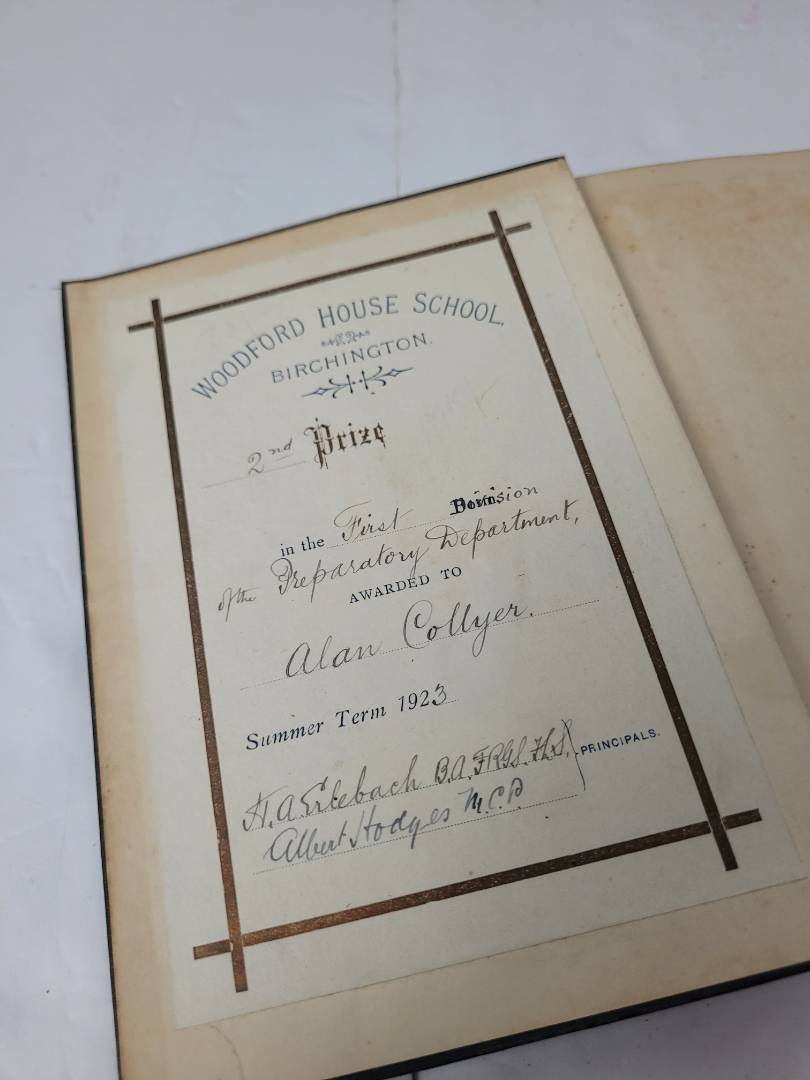 WOODFORD HOUSE SCHOOL,
BIRCHINGTON.
2nd Prize
in the First Division
of the Preparatory Department,
AWARDED TO
Alan Collyer.
Summer Term 1923
H. A. Erlebach B.A. F.R.G.S. F.L.S. PRINCIPALS.
Albert Hodges M.C.P.